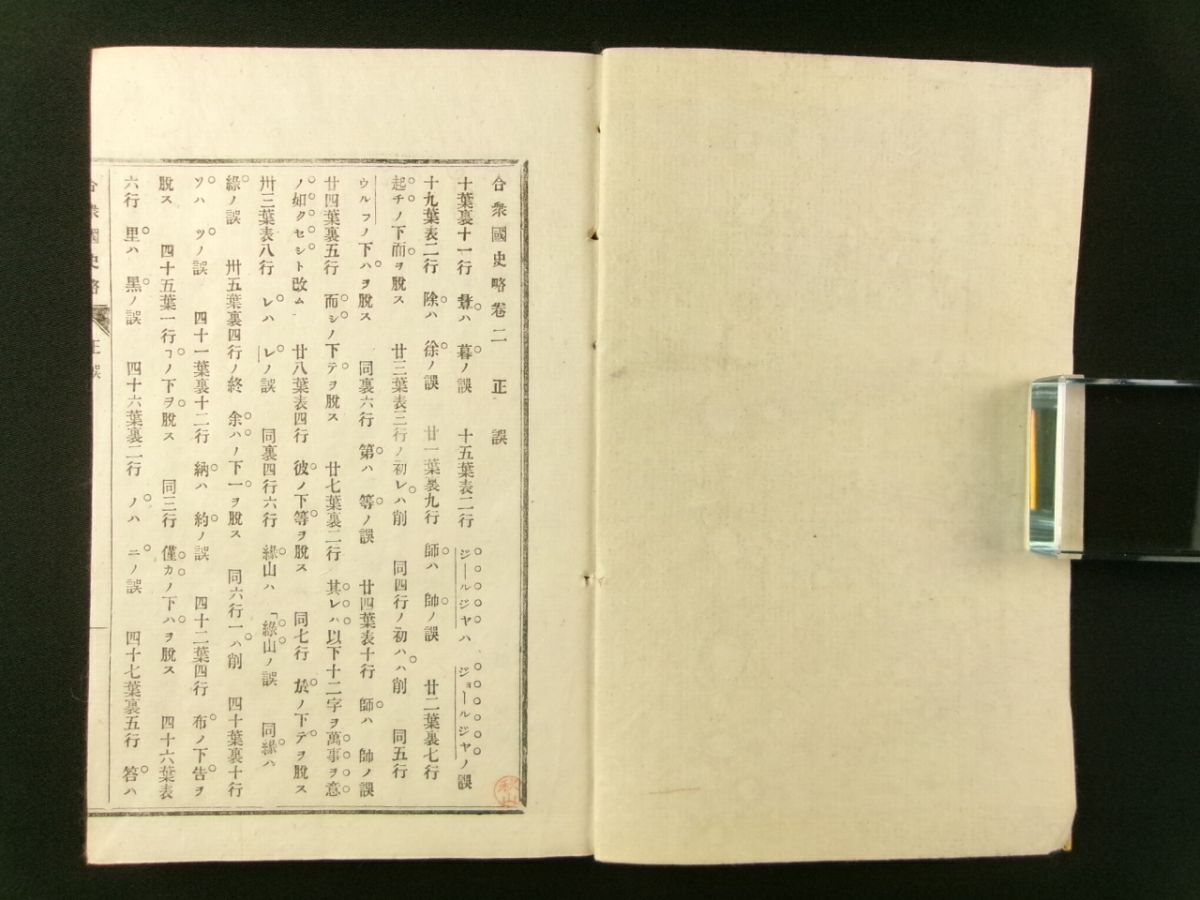 合衆國史略卷二 正誤
十葉裏十一行 ハ 暮ノ誤 十五葉表二行 ジールジヤハ ジョールジヤノ誤
十九葉表二行 除ハ 徐ノ誤 廿一葉裏九行 師ハ 帥ノ誤 廿二葉裏七行
起チノ下而ヲ脱ス 廿三葉表三行ノ初レハ削 同四行ノ初ハハ削 同五行
ウルフノ下ハヲ脱ス 同裏六行 第ハ 等ノ誤 廿四葉表十行 師ハ 帥ノ誤
廿四葉裏五行 而シノ下テヲ脱ス 廿七葉裏二行 其レハ以下十二字ヲ萬事ヲ意
ノ如クセシト改ム 廿八葉表四行 彼ノ下等ヲ脱ス 同七行 於ノ下テヲ脱ス
卅三葉表八行 レハ レノ誤 同裏四行六行 緣山ハ 「綠山ノ誤 同緣ハ
綠ノ誤 卅五葉裏四行ノ終 余ハノ下一ヲ脱ス 同六行一ハ削 四十葉裏十行
ソハ ツノ誤 四十一葉裏十二行 納ハ 約ノ誤 四十二葉四行 布ノ下告ヲ
脱ス 四十五葉一行フノ下ヲ脱ス 同三行 僅カノ下ハヲ脱ス 四十六葉表
六行 里ハ 黑ノ誤 四十六葉裏二行 ノハ ニノ誤 四十七葉裏五行 答ハ
合衆國史略 正誤